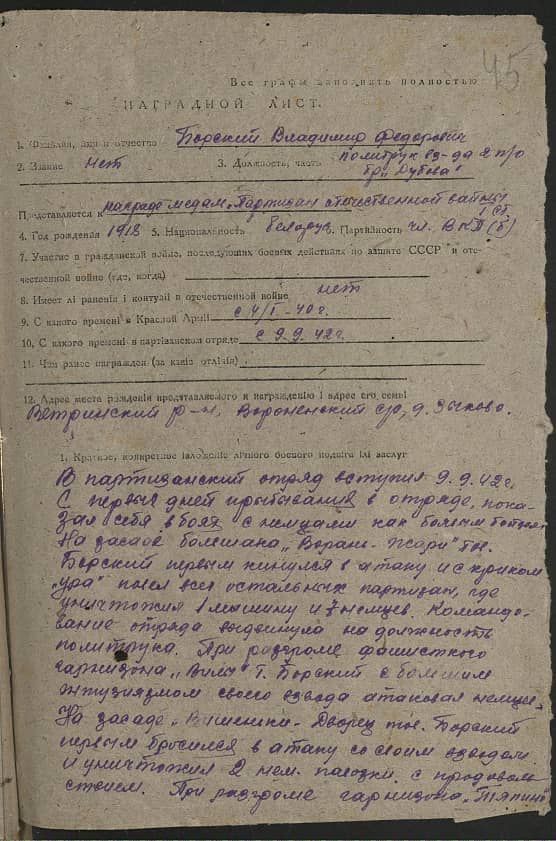 45
Все графы заполнять полностью
НАГРАДНОЙ ЛИСТ.
1. Фамилия, имя и отчество Борский Владимир Федорович
2. Звание нет 3. Должность, часть политрук вз-да 2 п/о
бр. „Дубова"
Представляется к награде медал. „Партизан отечественной войны
I ст.
4. Год рождения 1918 5. Национальность белорус 6. Партийность чл. ВКП(б)
7. Участие в гражданской войне, последующих боевых действиях по защите СССР и оте-
чественной войне (где, когда)
8. Имеет лі раненія і контузіі в отечественной войне нет
9. С какого времени в Красной Армії с 4/I-40 г.
10. С какого времени в партізанском отряде с 9.9.42 г.
11. Чем ранее награжден (за какіе отлічія)
12. Адрес места рожденія представляемого к награжденію і адрес его семьі
Ветринский р-н, Вороненский с/с, д. Зычково.
1. Краткое, конкретное ізложеніе лічного боевого подвіга ілі заслуг
В партизанский отряд вступил 9.9.42 г.
С первых дней прибывания в отряде, пока-
зал себя в боях с немцами как
На засаде большака „ тов.
Борский первым кинулся в атаку и с криком
„ура" повел всех остальных партизан, где
уничтожил 1 машину и 7 немцев. Командо-
вание отряда выдвинула на должность
политрука. При разгроме фашистского
гарнизона „ т. Борский с большим
энтузиязмом своего взвода атаковал немцев.
На засаде „ Дворец тов. Борский
первым бросился в атаку со своим взводом
и уничтожил 2 нем. повозки с продоволь-
ствием. При разгроме гарнизона „Тяпино"